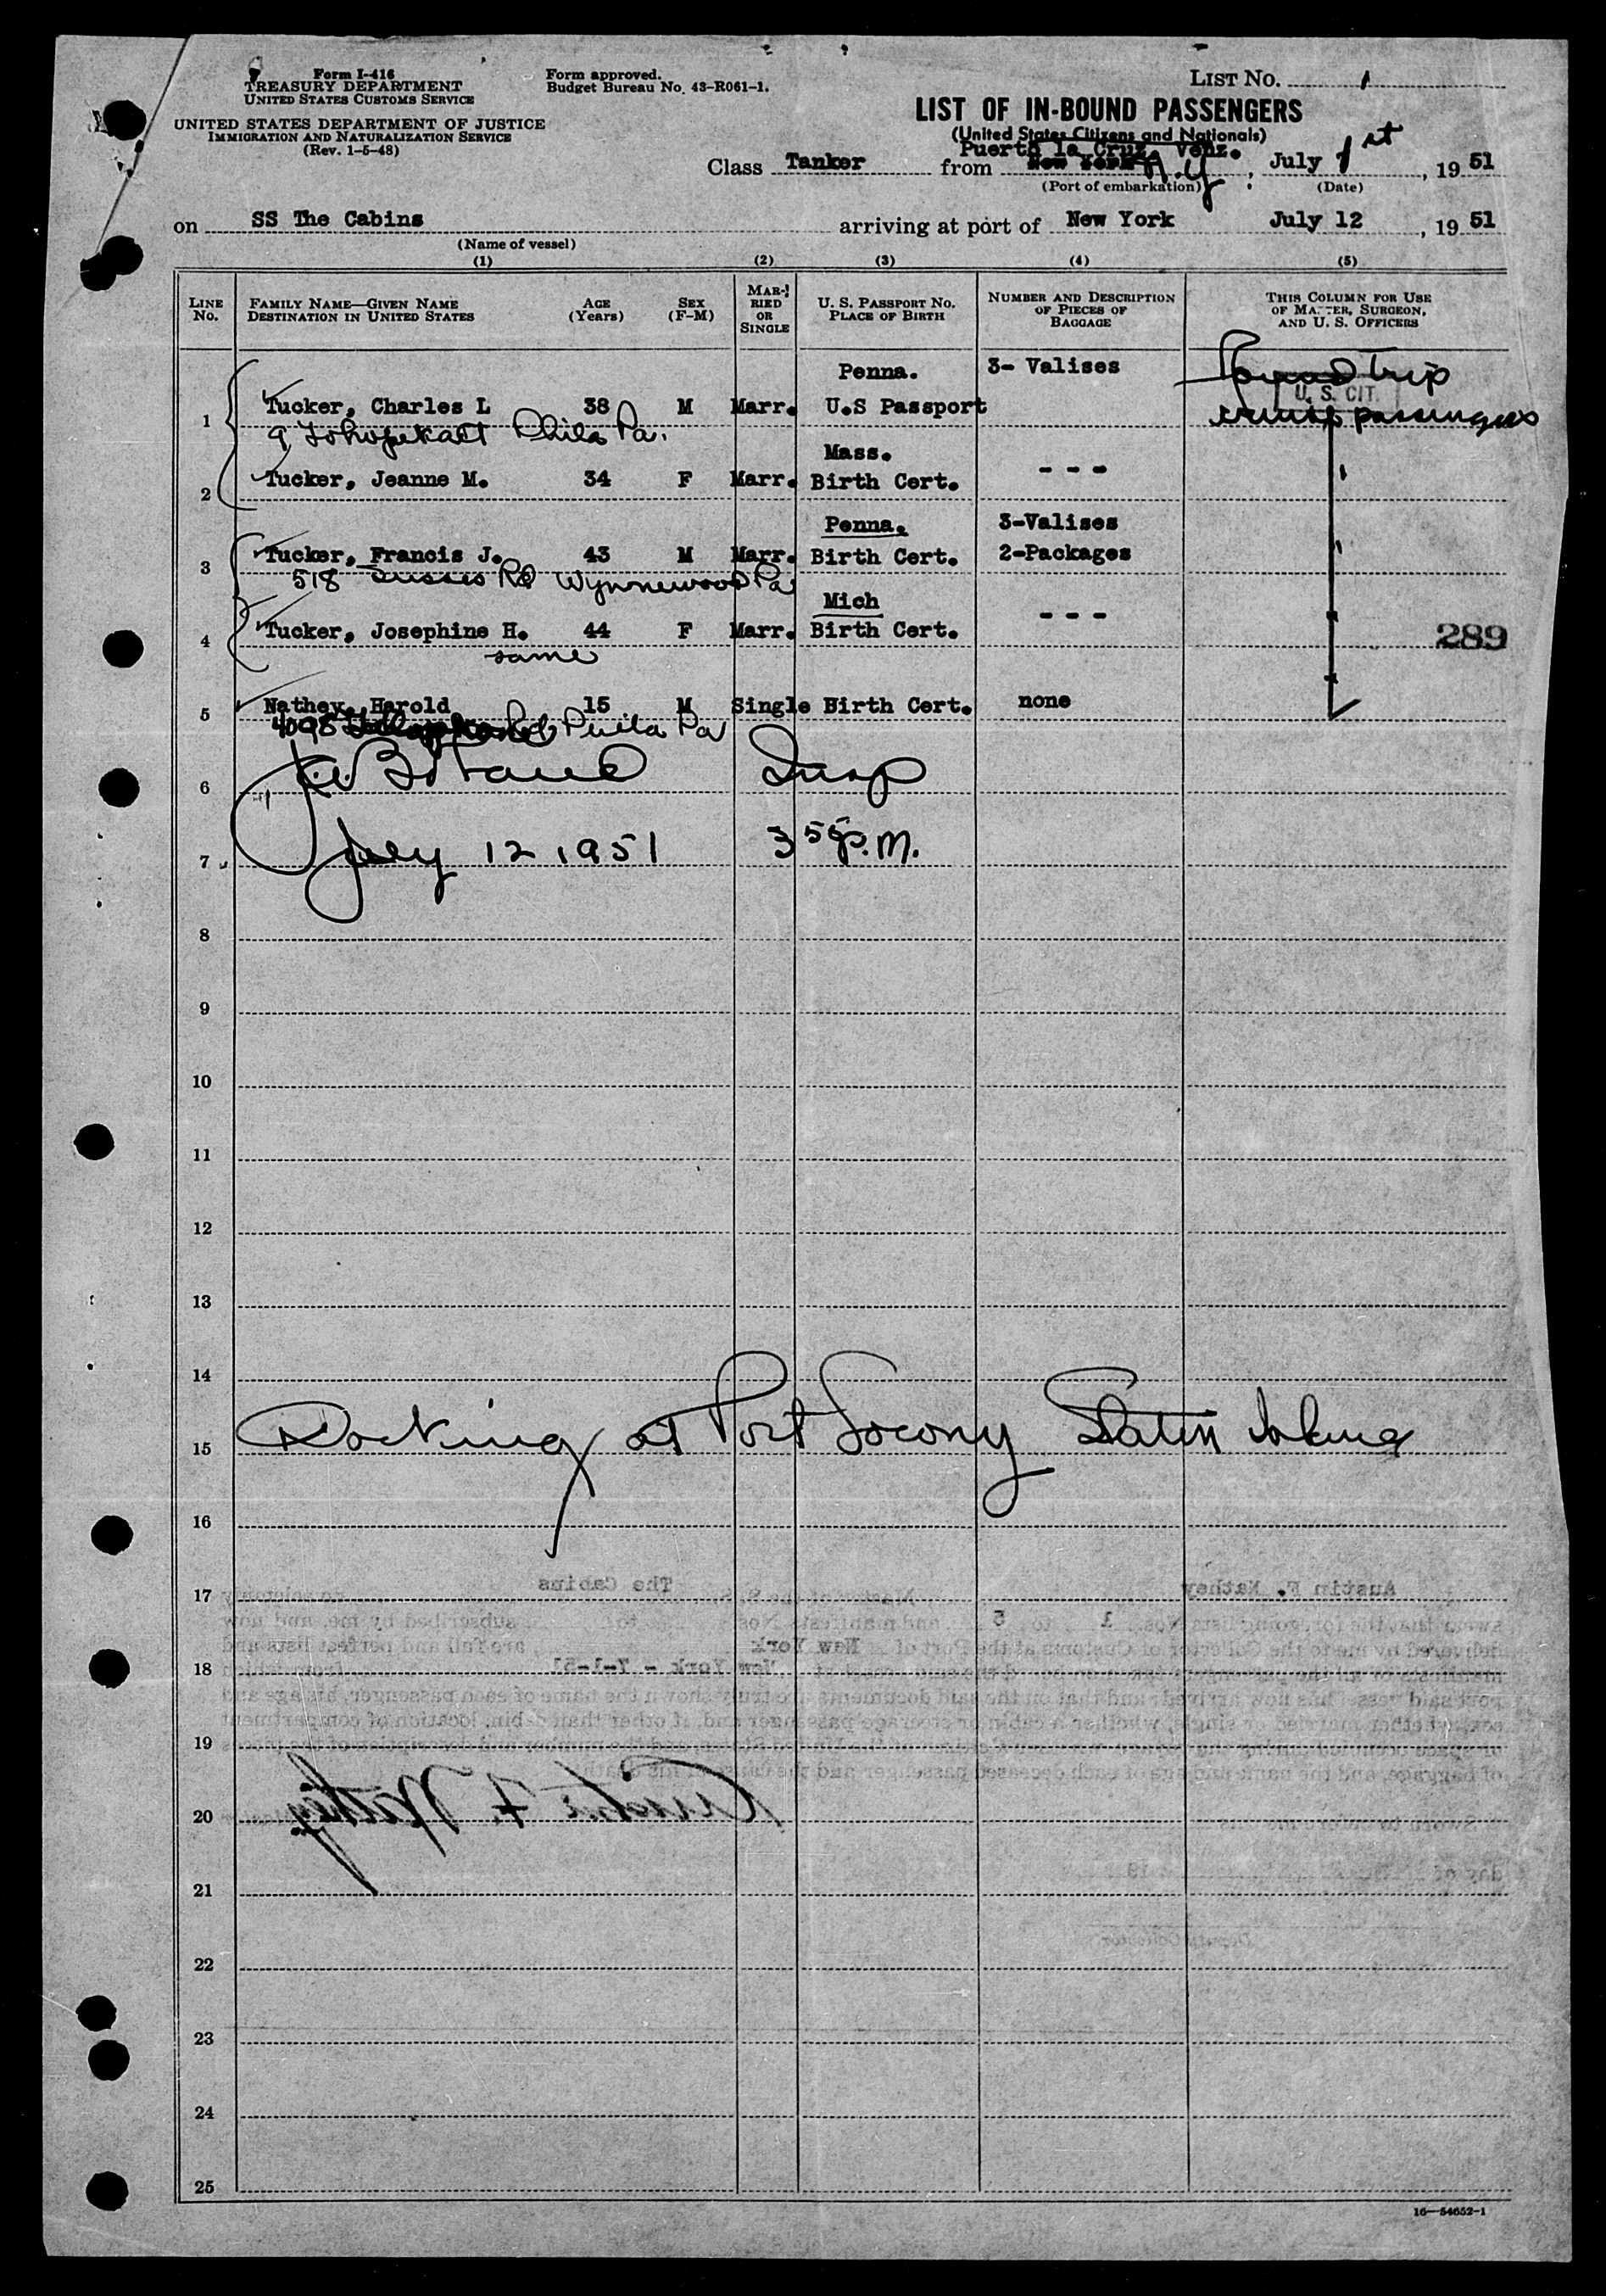 Form I-416
TREASURY DEPARTMENT
UNITED STATES CUSTOMS SERVICE
UNITED STATES DEPARTMENT OF JUSTICE
IMMIGRATION AND NATURALIZATION SERVICE
(Rev. 1-5-48)
Form approved.
Budget Bureau No. 43-R061-1.
LIST NO. 1
LIST OF IN-BOUND PASSENGERS
(United States Citizens and Nationals)
Puerto la Cruz, Venz.
Class Tanker from New York N.Y. , July 1st , 19 51
(Port of embarkation) (Date)
on SS The Cabins arriving at port of New York July 12 , 19 51
(Name of vessel)
(1) (2) (3) (4) (5)
LINE NO. FAMILY NAME—GIVEN NAME DESTINATION IN UNITED STATES AGE (Years) SEX (F-M) MARRIED OR SINGLE U. S. PASSPORT NO. PLACE OF BIRTH NUMBER AND DESCRIPTION OF PIECES OF BAGGAGE THIS COLUMN FOR USE OF MASTER, SURGEON, AND U. S. OFFICERS
Penna. 3- Valises Round Trip
U. S. CIT.
1 Tucker, Charles L 38 M Marr. U.S Passport cruise passengers
9 Phila Pa.
Mass.
2 Tucker, Jeanne M. 34 F Marr. Birth Cert. - - -
Penna. 3-Valises
3 Tucker, Francis J. 43 M Marr. Birth Cert. 2-Packages
518 Sussex Rd Wynnewood Pa
Mich
4 Tucker, Josephine H. 44 F Marr. Birth Cert. - - - 289
same
5 Nathey, Harold 15 M Single Birth Cert. none
4098 Phila Pa
6 Insp
7 July 12 1951 3 55 P.M.
8
9
10
11
12
13
14
15 Docking at Port Socony Staten Island
16
17 Austin F. Nathey The Cabins
18 New York
New York - 7-1-51
19
20 Austin F. Nathey
21
22
23
24
25
16—54652-1